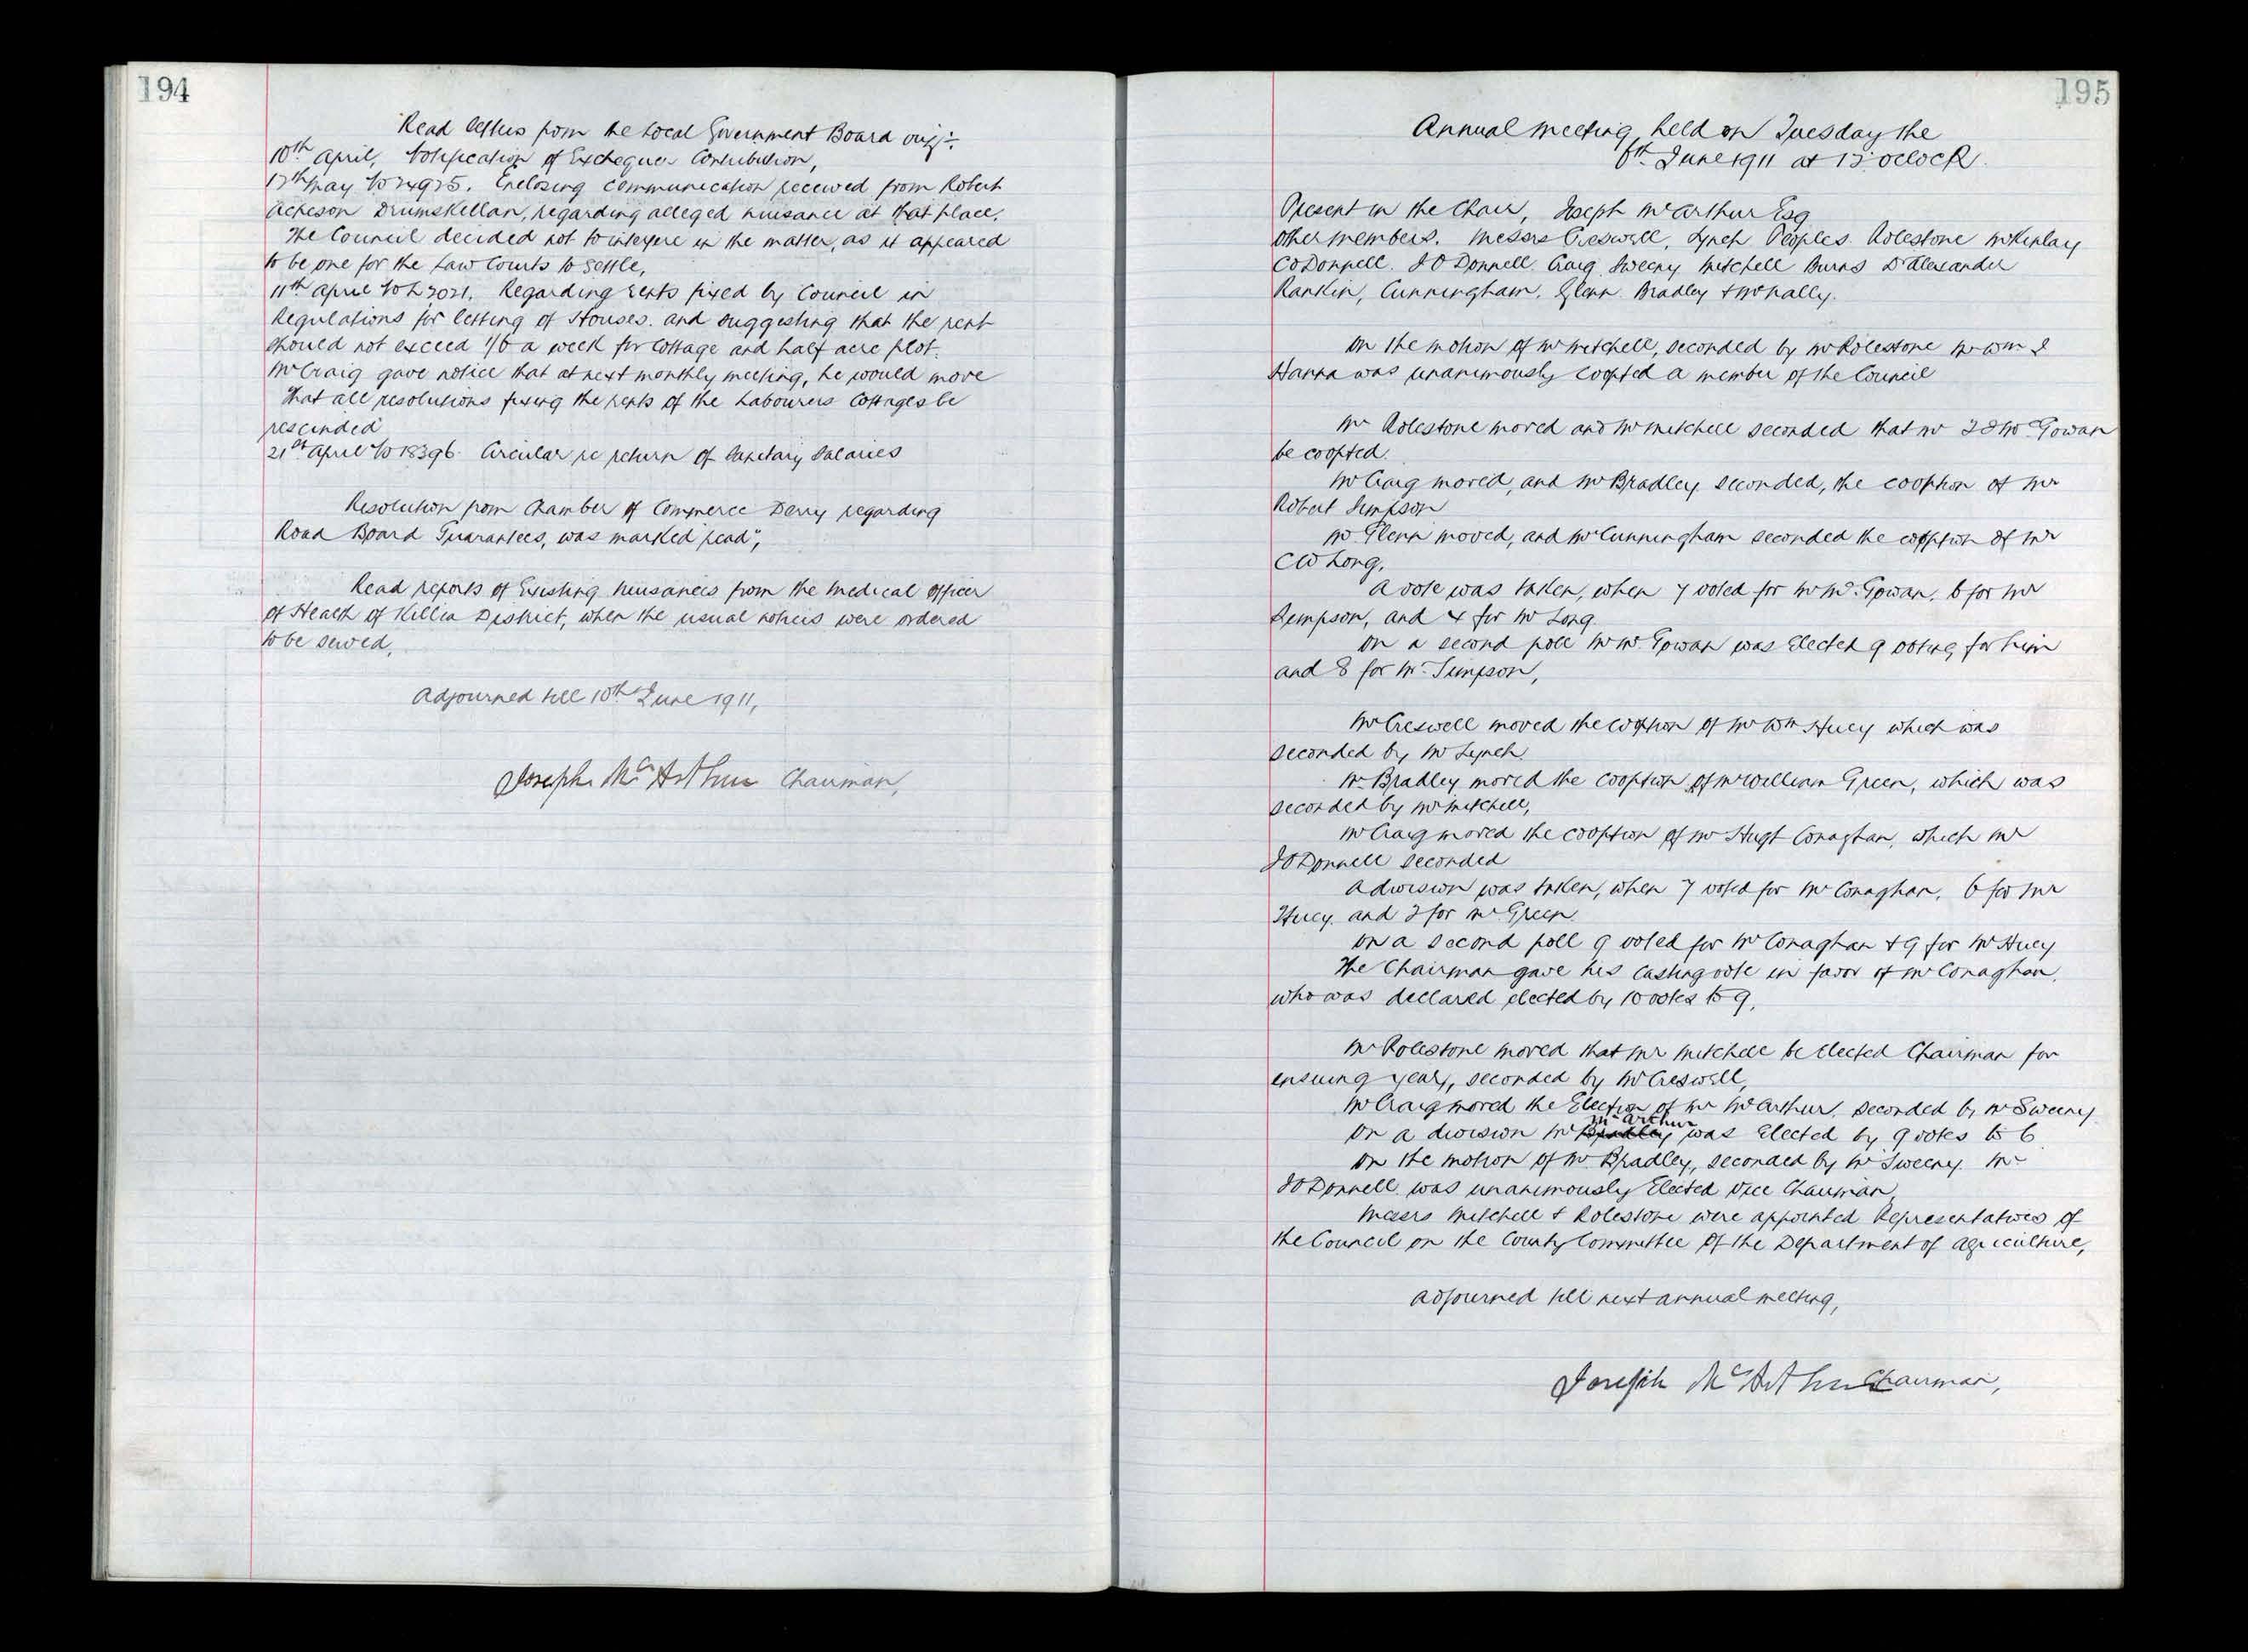 194
Read letters from the Local Government Board viz:-
10th April, Notification of Exchequer Contribution,
17th May No 24925. Enclosing communication received from Robert
Acheson Drumskellan, regarding alleged nuisance at that place.
The Council decided not to interfere in the matter, as it appeared
to be one for the Law Courts to settle,
11th April No 2021. Regarding rents fixed by Council in
Regulations for letting of Houses. and suggesting that the rent
should not exceed 1/6 a week for Cottage and half acre plot.
Mr Craig gave notice that at next monthly meeting, he would move
"That all resolutions fixing the rents of the Labourers Cottages be
rescinded"
21st April No 18396. Circular re return of Sanitary Salaries
Resolution from Chamber of Commerce Derry regarding
Road Board Guarantees, was marked "read",
Read reports of Existing nuisances from the Medical Officer
of Health of Killea District, when the usual notices were ordered
to be served,
Adjourned till 10th June 1911,
Joseph McArthur Chairman,
195
Annual Meeting, held on Tuesday the
6th June 1911 at 12 oclock.
Present in the Chair, Joseph McArthur Esq
other members. Messrs Creswell, Lynch Peoples Rolestone McKinlay
C O'Donnell. J O'Donnell. Craig Sweeny Mitchell Burns Dr Alexander
Rankin, Cunningham, Glenn Bradley & McNally.
On the motion of Mr Mitchell, seconded by Mr Rolestone Mr Wm J
Hanna was unanimously coopted a member of the Council
Mr Rolestone moved and Mr Mitchell seconded that Mr McGowan
be coopted.
Mr Craig moved, and Mr Bradley seconded, the cooption of Mr
Robert Simpson
Mr Glenn moved, and Mr Cunningham seconded the cooption of Mr
C W Long.
A vote was taken, when 7 voted for Mr McGowan, 6 for Mr
Simpson, and 4 for Mr Long.
On a second poll Mr McGowan was Elected 9 voting for him
and 8 for Mr Simpson,
Mr Creswell moved the cooption of Mr Wm Huey which was
seconded by Mr Lynch.
Mr Bradley moved the cooption of Mr William Green, which was
seconded by Mr Mitchell,
Mr Craig moved the cooption of Mr Hugh Conaghan, which Mr
J O'Donnell seconded
A division was taken, when 7 voted for Mr Conaghan, 6 for Mr
Huey. and 2 for Mr Green.
On a second poll 9 voted for Mr Conaghan & 9 for Mr Huey
The Chairman gave his casting vote in favor of Mr Conaghan,
who was declared elected by 10 votes to 9,
Mr Rolestone moved that Mr Mitchell be Elected Chairman for
ensuing year, seconded by Mr Creswell,
Mr Craig moved the Election of Mr McArthur, seconded by Mr Sweeny.
McArthur
On a division Mr Bradley was Elected by 9 votes to 6
On the motion of Mr Bradley, seconded by Mr Sweeny. Mr
J O'Donnell was unanimously Elected Vice Chairman,
Messrs Mitchell & Rolestone were appointed Representatives of
the Council on the County Committee of the Department of Agriculture,
Adjourned till next annual meeting,
Joseph McArthur Chairman,